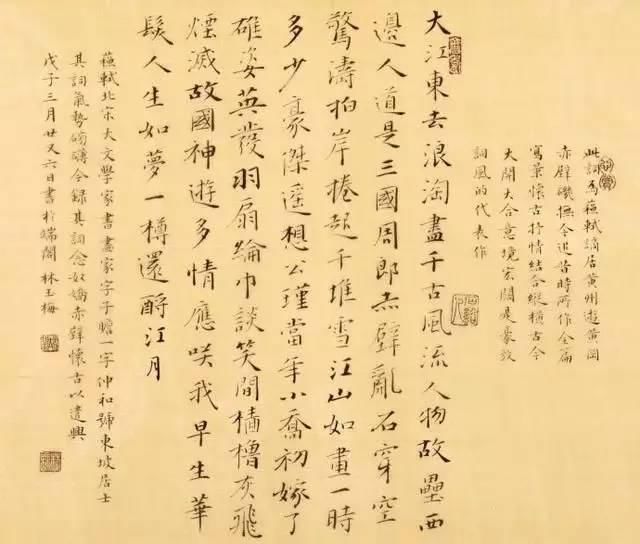 此詞為蘓軾謫居黃州遊黃岡
赤壁磯撫今追昔時所作全篇
寫景懷古抒情結合縱橫古今
大開大合意境宏闊豪放
詞風的代表作
大江東去浪淘盡千古風流人物故壘西
邊人道是三國周郎赤壁亂石穿空
驚濤拍岸捲起千堆雪江山如畫一時
多少豪傑遥想公瑾當年小喬初嫁了
雄姿英發羽扇綸巾談笑間檣櫓灰飛
煙滅故國神遊多情應咲我早生華
髮人生如夢一樽還酹江月
蘓軾北宋大文學家書畫家字子瞻一字仲和號東坡居士
其詞氣勢磅礴今録其詞念奴嬌赤壁懷古以遣興
戊子三月廿又六日書於端閣 林玉梅